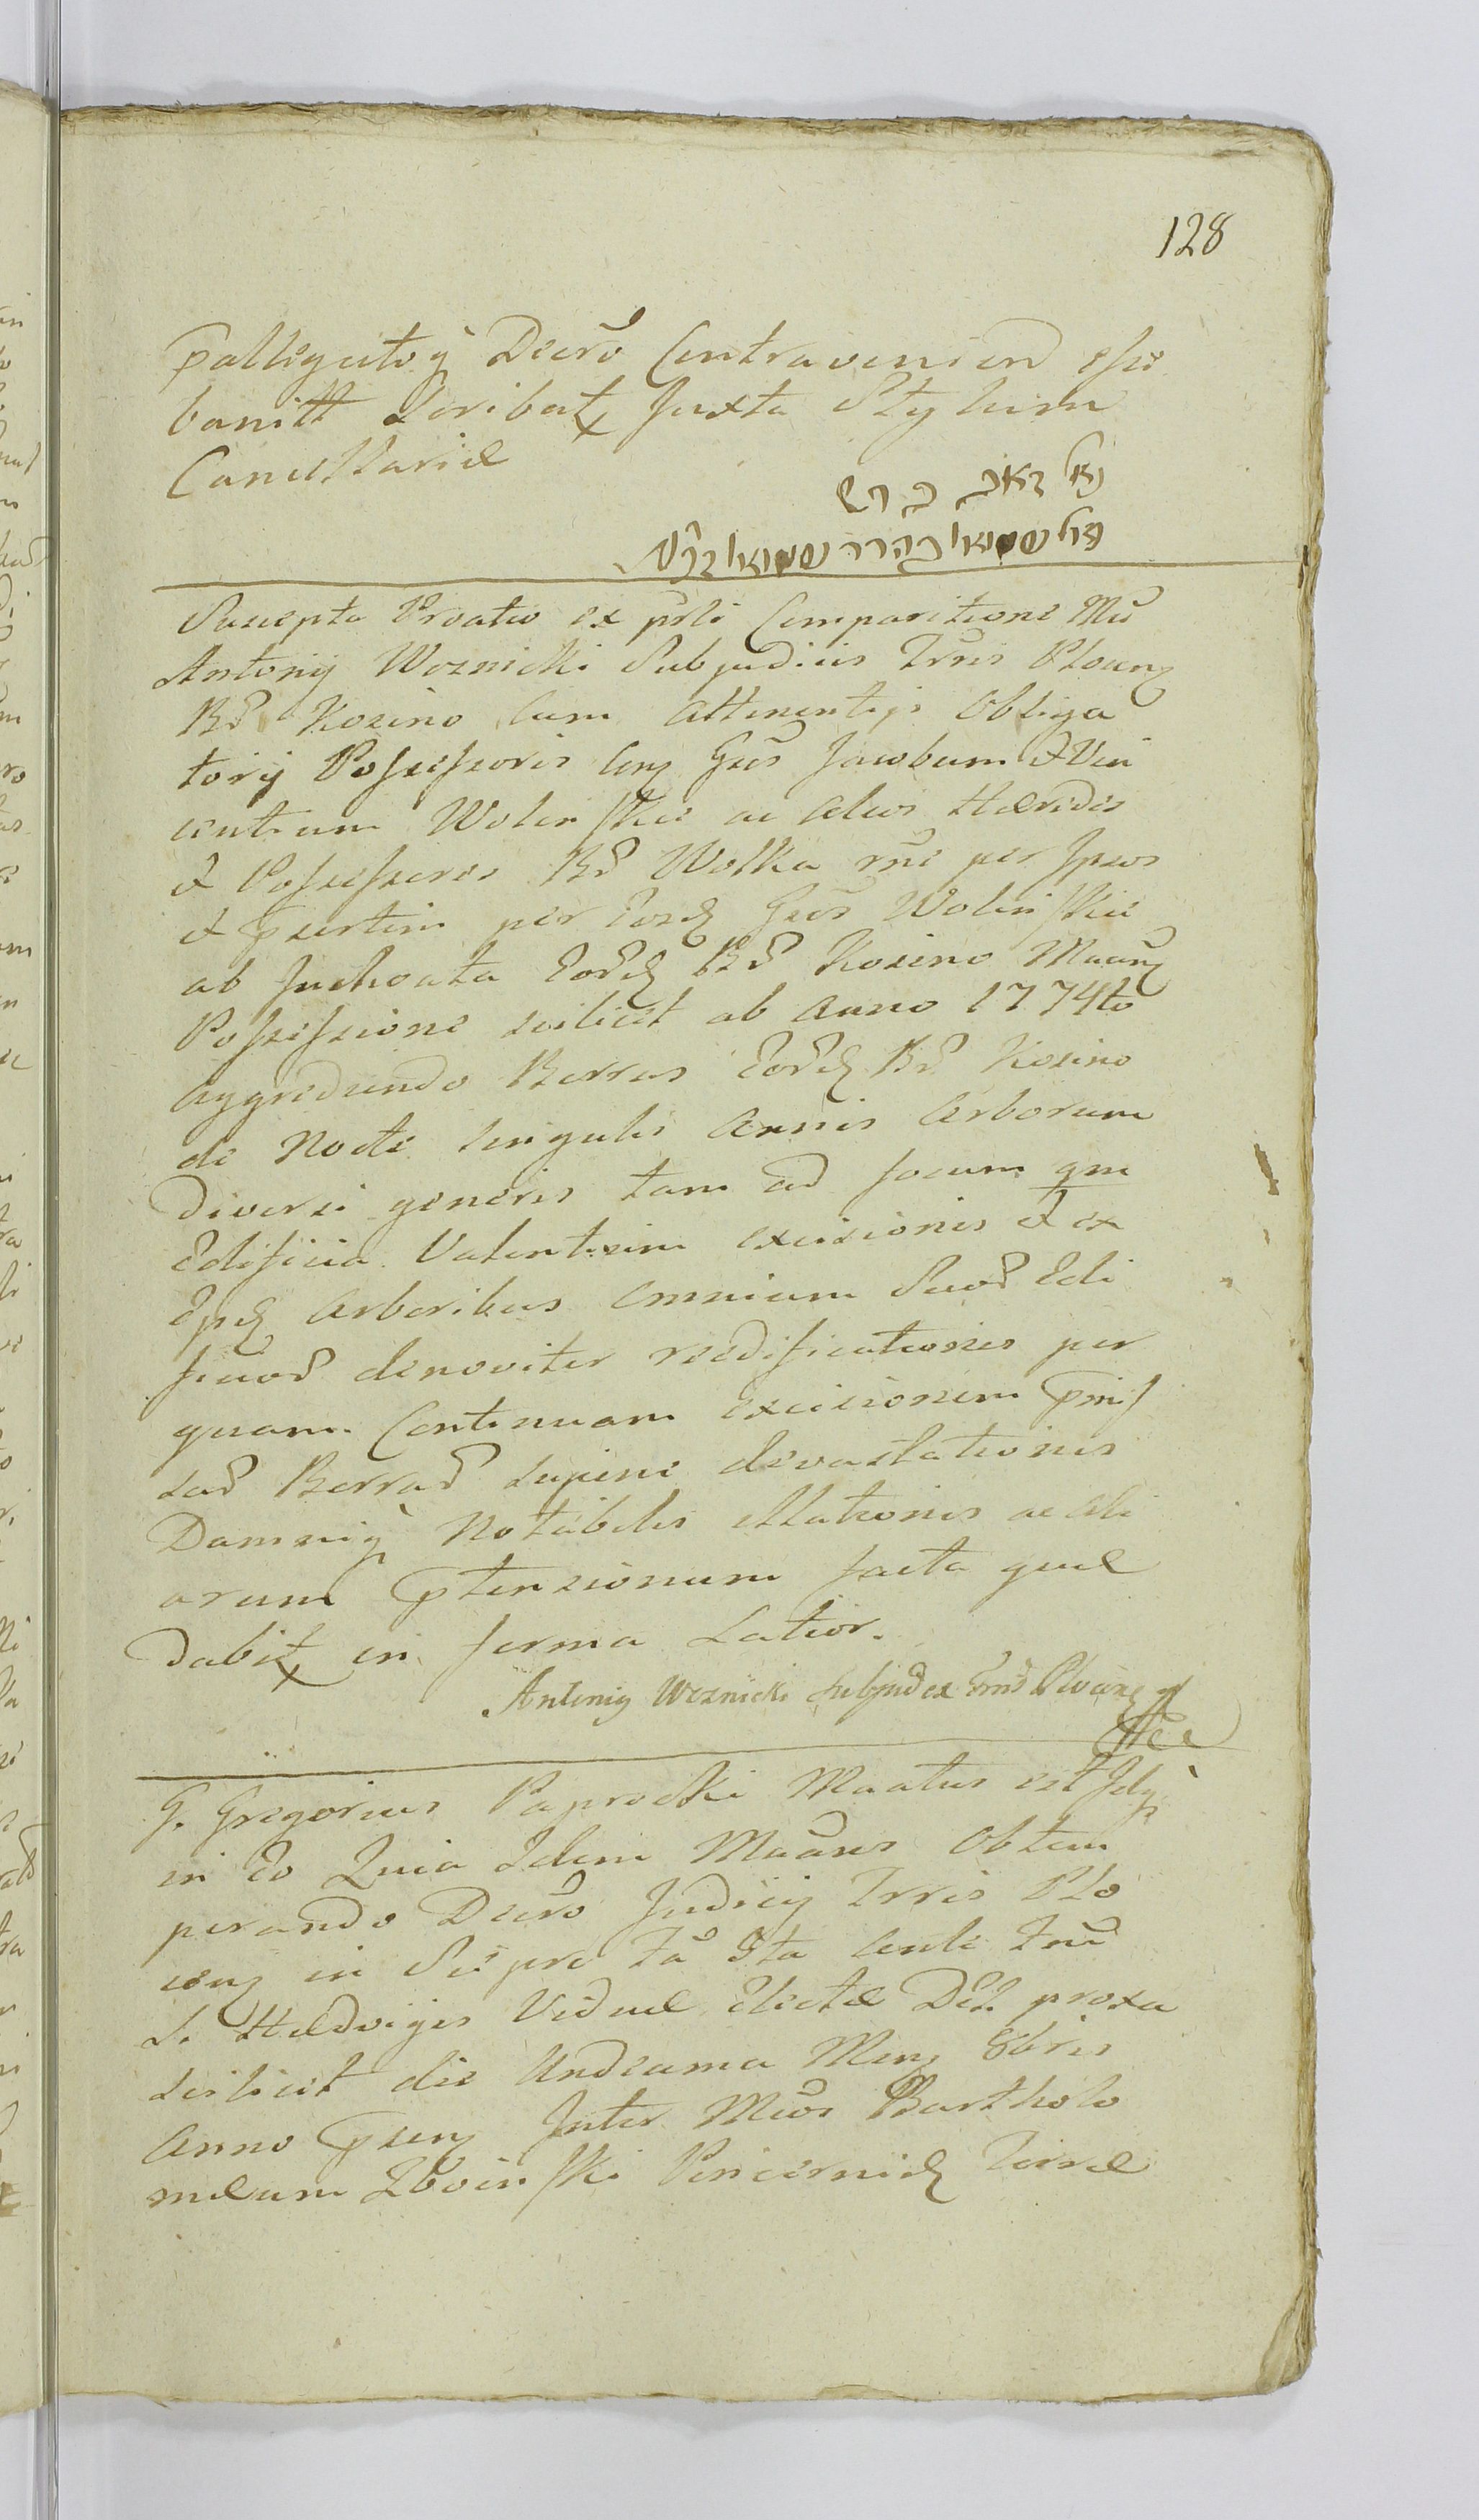 128
pallegatoq Decro Contravenien esse
banitt Scribatx Juxta Stylum
Cancellariæ
Suscepta Protatio ex prsli Comparitione Mci
Antonij Woznicki Subjudicis Trris Plocens
Bd Kosino Cum attinentijs Obliga
torij Possessoris Cons Gsos Jacobum & Vin
centium Wolinskie ac alios Hæredes
& Possessores Bd Wolka rne per Ipsos
& psertim per Eosd Gsos Wolinskie
ab Inchoata Eord Bd Kosino Maans
Possessione scilicet ab Anno 1774to
aggrediendo Borras Eord Bd Kosino
de Nocte Singulis Annis Arborum
Diversi generis tam ad focum qm
Edificia Valentium excisionis & ex
Ipsd Arboribus Omnium Suor Edi
ficior denoviter reedificationis per
quam Continuam excisionem pmis
sar Borrar Supine devastationis
Damniq Notabilis illationis ac ali
arum ptensionum facta quæ
Dabitx in forma Latior.
Antonij Woznicki Subjudex Trris Plocens
G. Gregorius Paprocki Maatus est Idq
in Eo Quia Idem Maans Obtem
perando Decro Judicij Trris Plo
cens in Sie pro fa 3tia Conti Fm
S. Hædvigis Viduæ Electæ Dei proxa
scilicet die Undecima Mens 8bris
Anno psens Inter Mcos Bartholo
mæum Zboinski Pincernid Terræ